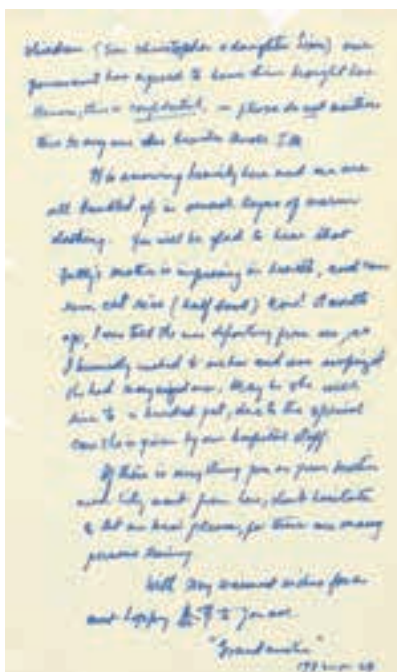 children (Son Christopher & daughter Lisa) our
government has agreed to have them brought here
this is confidential, — please do not mention
this to any one else besides
It is snowing heavily here and we are
all bundled up in several layers of warm
clothing. You will be glad to hear that
Patty's mother is improving in health, and can
now eat rice (half bowl) now! A month
ago, I was told she was departing from us, so
I hurriedly rushed to see her and was surprised
she had recognized me. May be she will
live to a hundred yet, due to the special
care she is given by our hospital staff.
If there is anything you or your mother
want from here, don't hesitate
& let me know please, for there are many
persons
With very warmest wishes for a
most happy to you all
"Grandauntie"